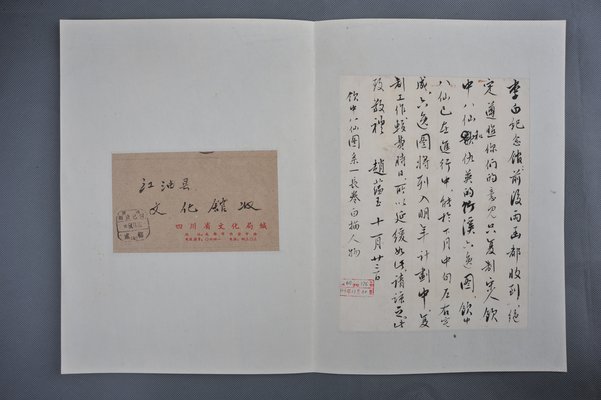 李白记念馆前后两函都收到。绝
定遵照你们的意见只复制宋人饮
中八仙和仇英的竹溪六逸图。饮中
八仙已在进行中,能于下月中旬左右完
成。六逸图将列入明年计划中。复
制工作较费时日,所以延缓如此请谅之。此
致敬礼 赵蕴玉 十一月廿三日
饮中八仙图系一长卷白描人物
江油县
文化馆收
四川省文化局缄